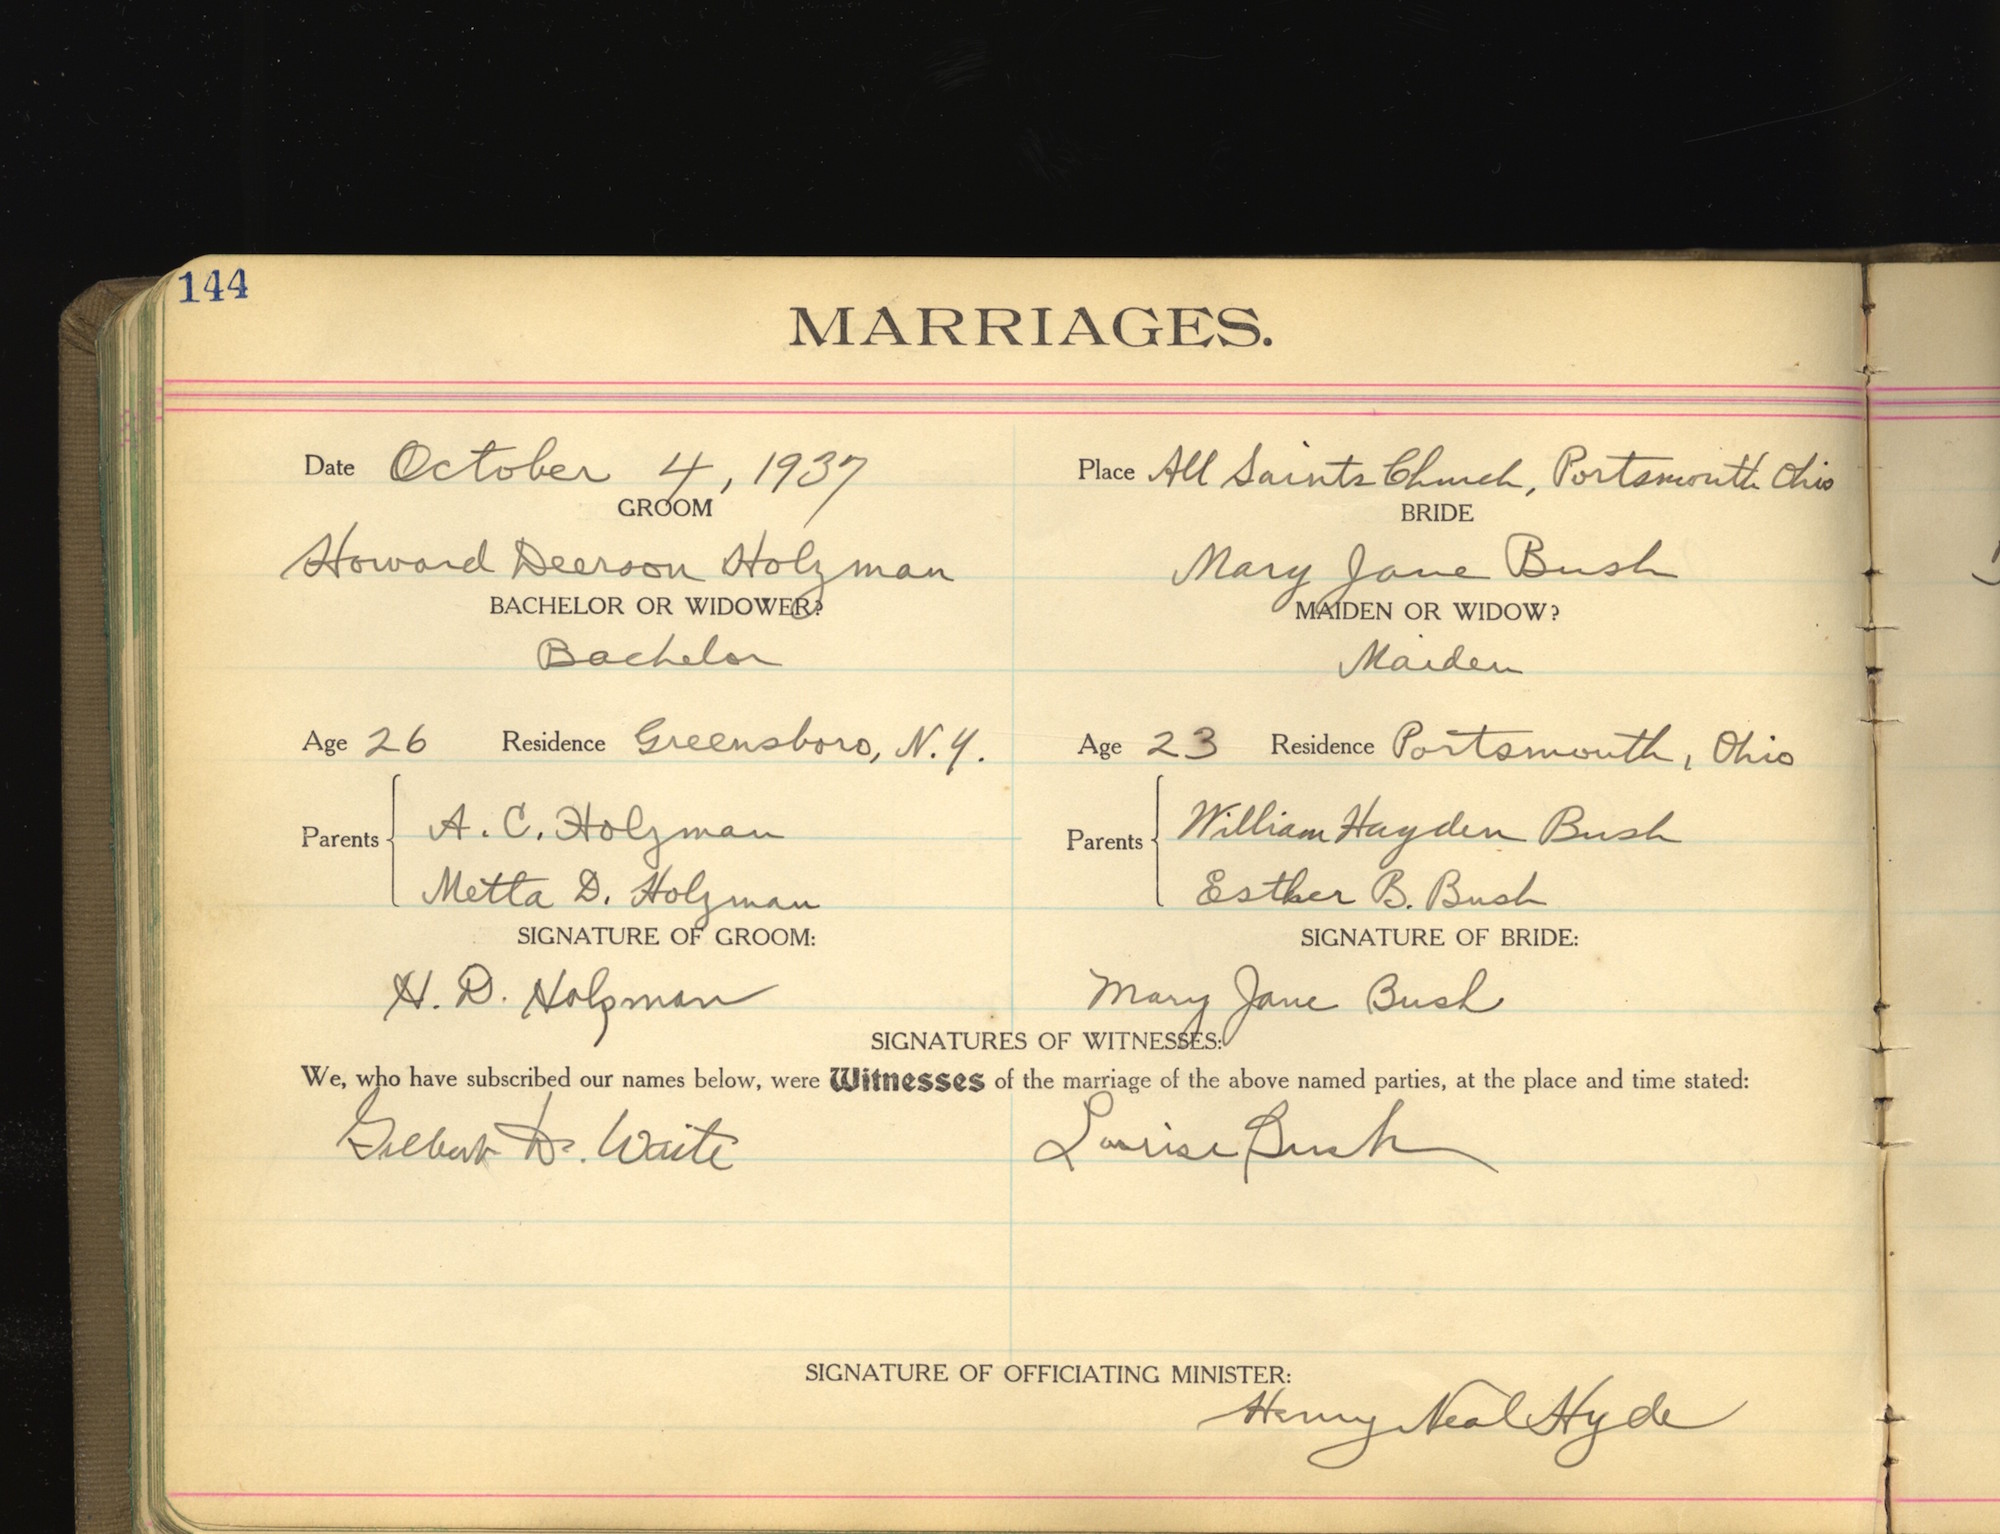 144
MARRIAGES.
Date October 4, 1937 Place All Saints Church, Portsmouth Ohio
GROOM BRIDE
Howard Deerson Holzman Mary Jane Bush
BACHELOR OR WIDOWER? MAIDEN OR WIDOW?
Bachelor Maiden
Age 26 Residence Greensboro, N.Y. Age 23 Residence Portsmouth, Ohio
Parents A. C. Holzman Parents William Hayden Bush
Metta D. Holzman Esther B. Bush
SIGNATURE OF GROOM: SIGNATURE OF BRIDE:
H. D. Holzman Mary Jane Bush
SIGNATURES OF WITNESSES:
We, who have subscribed our names below, were Witnesses of the marriage of the above named parties, at the place and time stated:
Gilbert D. Waite Louise Bush
SIGNATURE OF OFFICIATING MINISTER:
Henry Neal Hyde